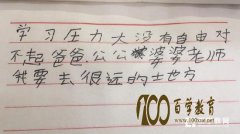 学习压力大没有自由对
不起爸爸.公公婆婆老师
我要去很远的土地方
100百学教育
www.100xue.net